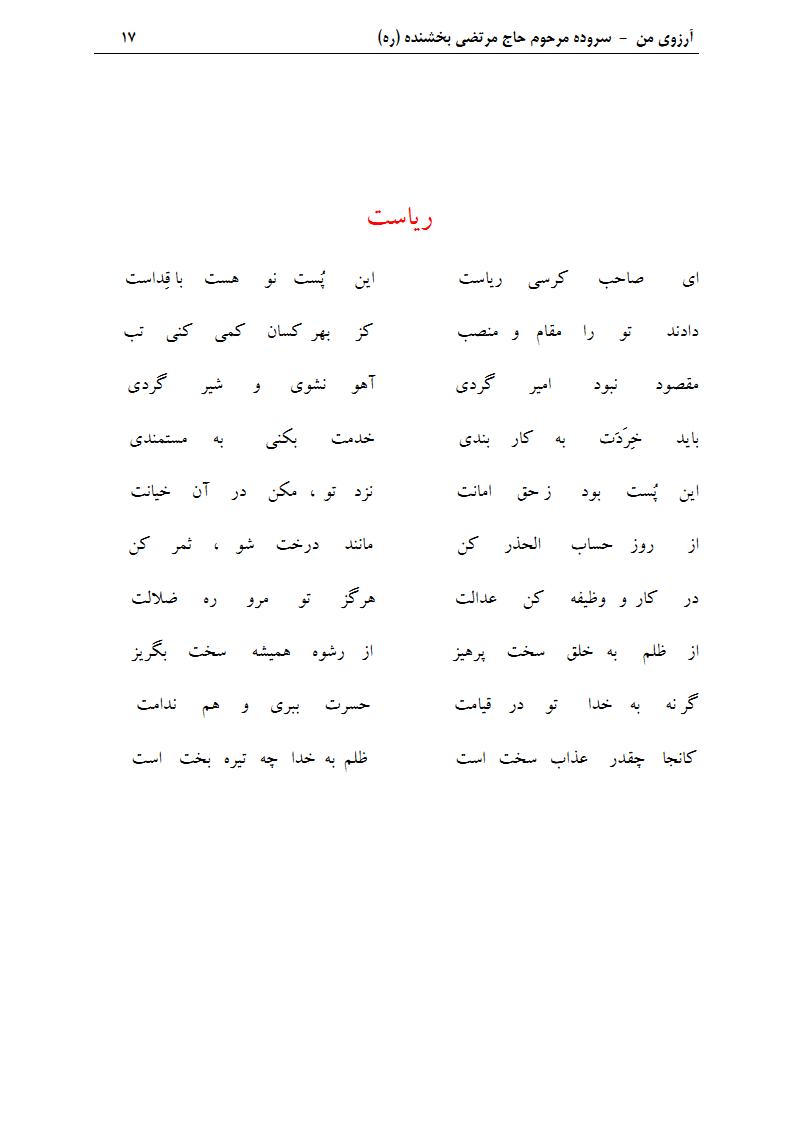 آرزوی من - سروده مرحوم حاج مرتضی بخشنده (ره) ۱۷
ریاست
ای صاحب کرسی ریاست این پُست نو هست با قِداست
دادند تو را مقام و منصب کز بهر کسان کمی کنی تب
مقصود نبود امیر گردی آهو نشوی و شیر گردی
باید خِرَدَت به کار بندی خدمت بکنی به مستمندی
این پُست بود ز حق امانت نزد تو ، مکن در آن خیانت
از روز حساب الحذر کن مانند درخت شو ، ثمر کن
در کار و وظیفه کن عدالت هرگز تو مرو ره ضلالت
از ظلم به خلق سخت پرهیز از رشوه همیشه سخت بگریز
گر نه به خدا تو در قیامت حسرت ببری و هم ندامت
کانجا چقدر عذاب سخت است ظلم به خدا چه تیره بخت است